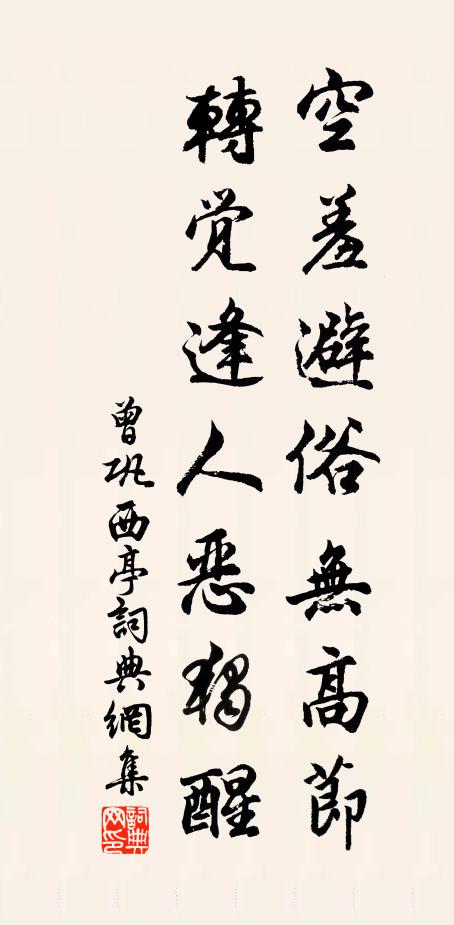 空羞避俗無高節
轉覚逢人恶独醒
曾巩西亭詞典網集
詞典网印